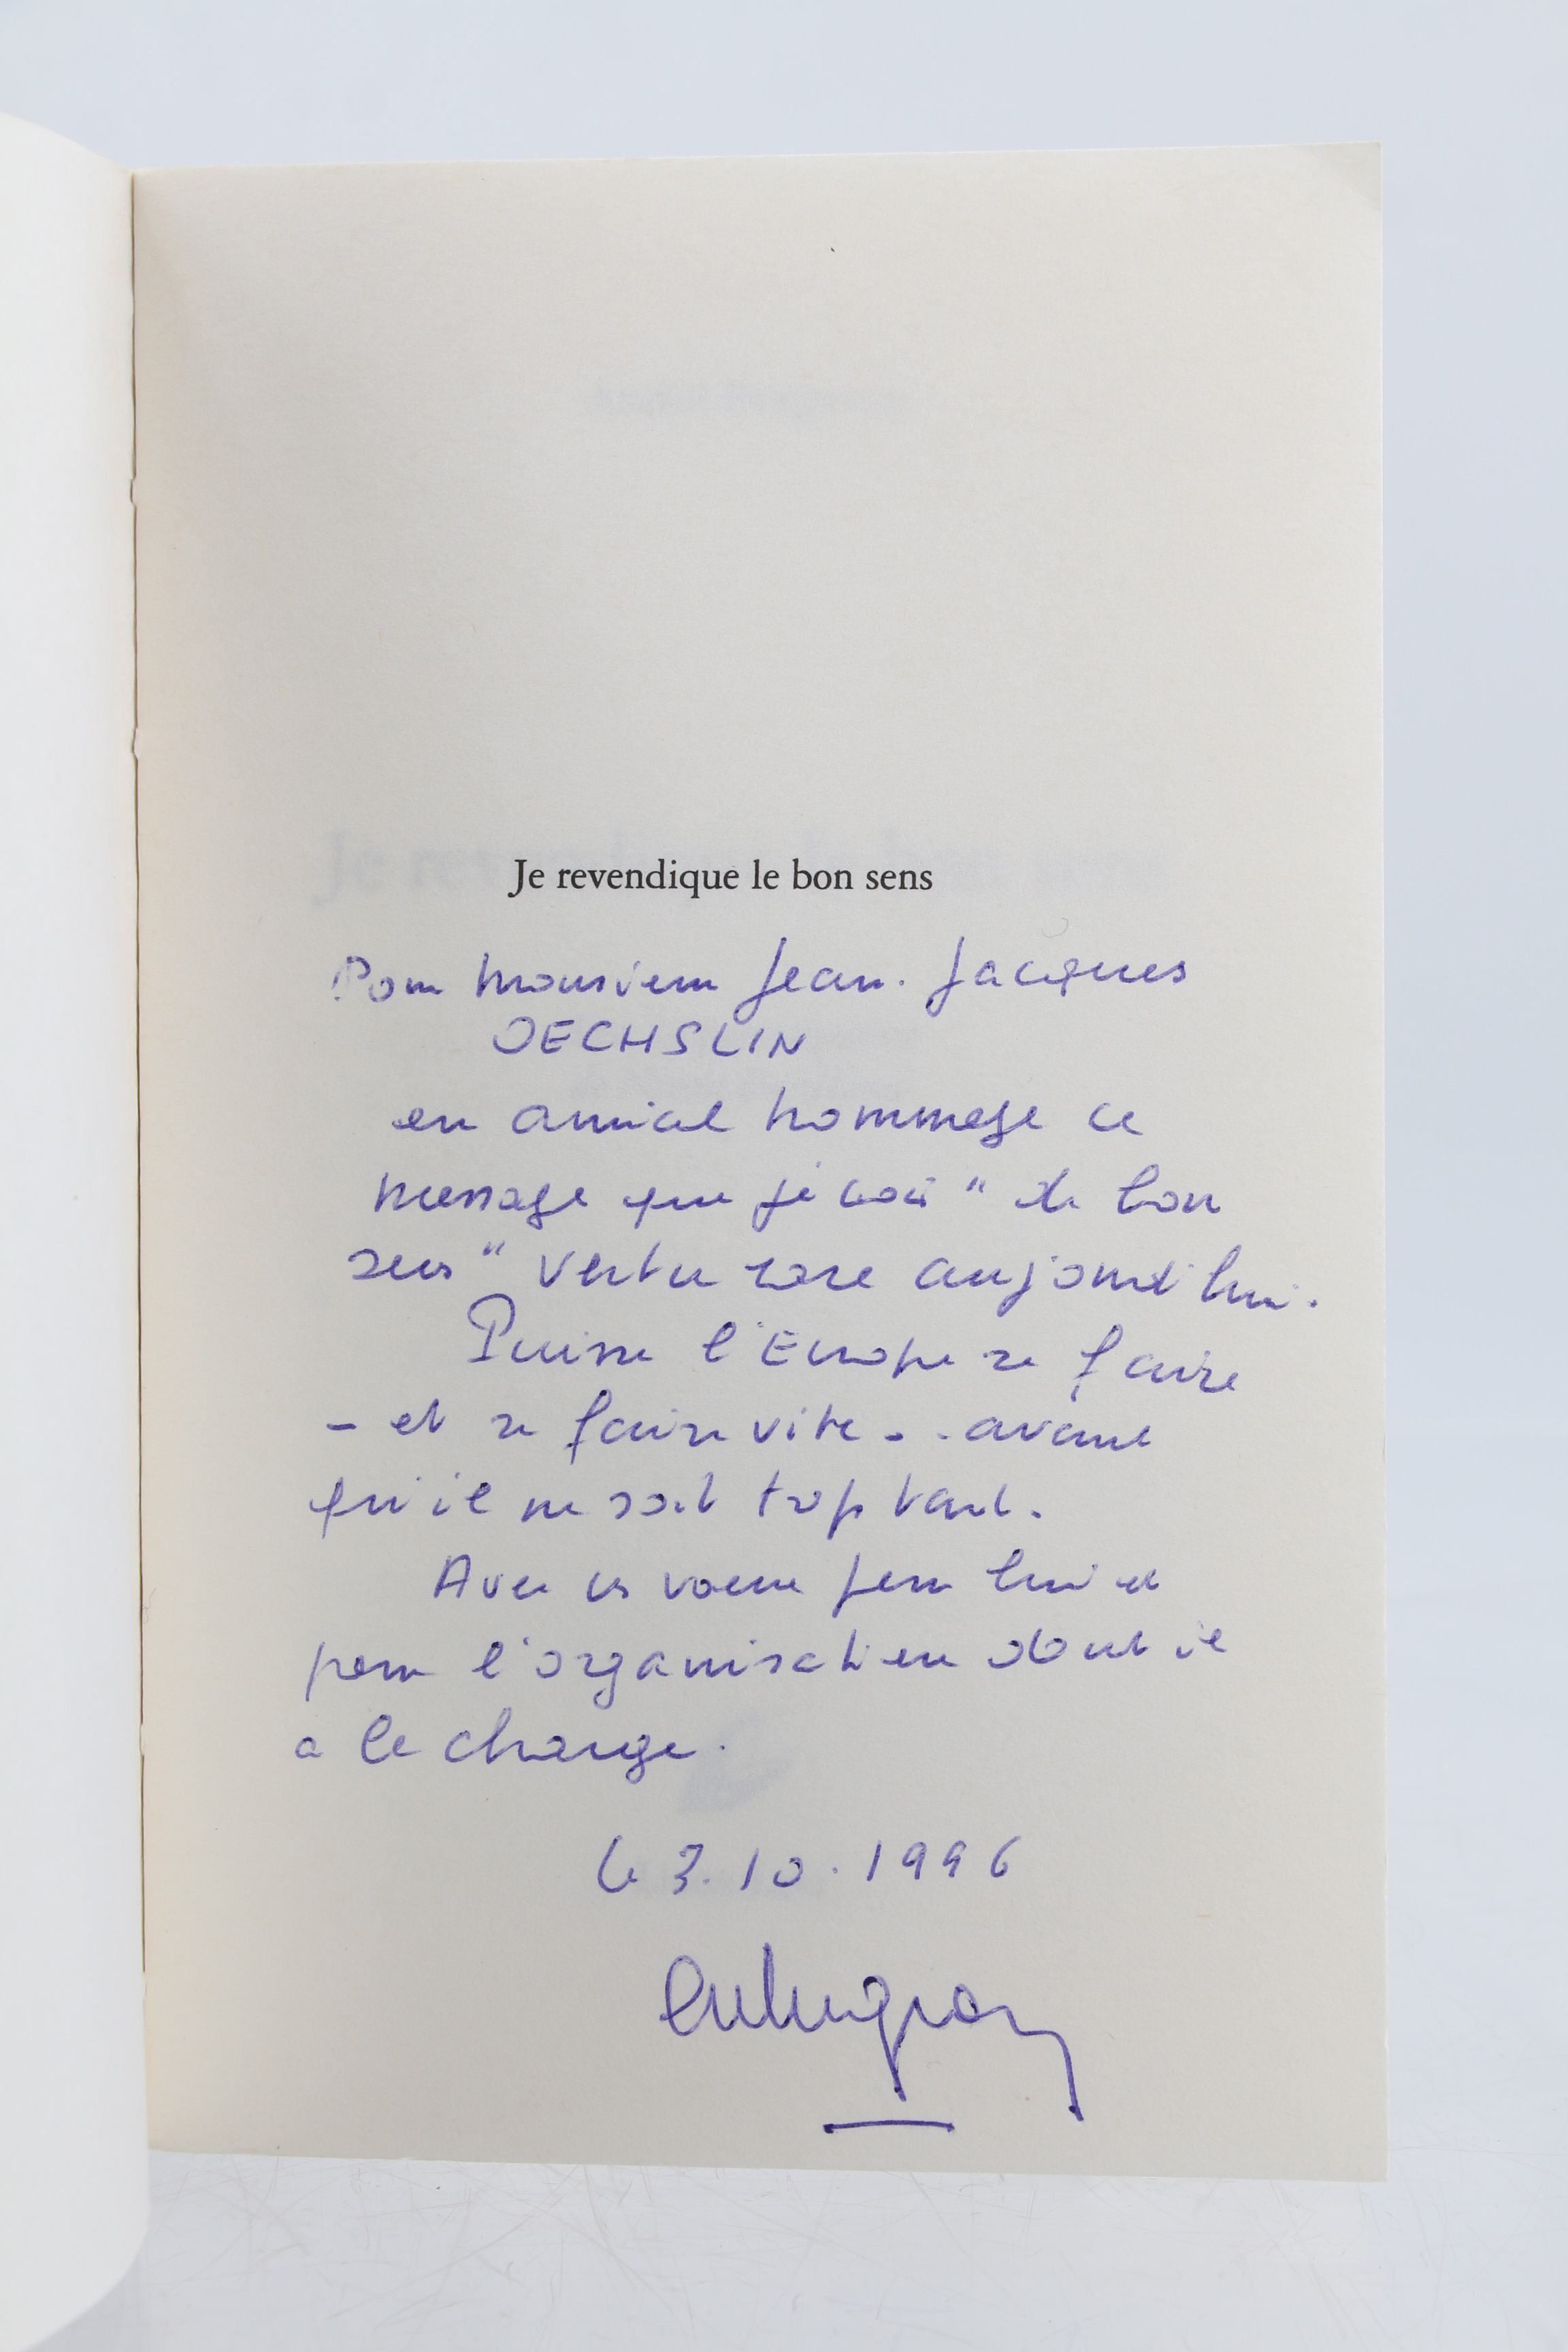 Je revendique le bon sens
Pour Monsieur Jean-Jacques
OECHSLIN
en amical hommage ce
message que je crois " de bon
sens " vertu rare aujourd'hui.
Puisse l'Europe se faire
- et se faire vite - . avant
qu'il ne soit trop tard.
Avec ces voeux pour lui et
pour l'organisation dont il
a la charge.
Le 3.10.1996